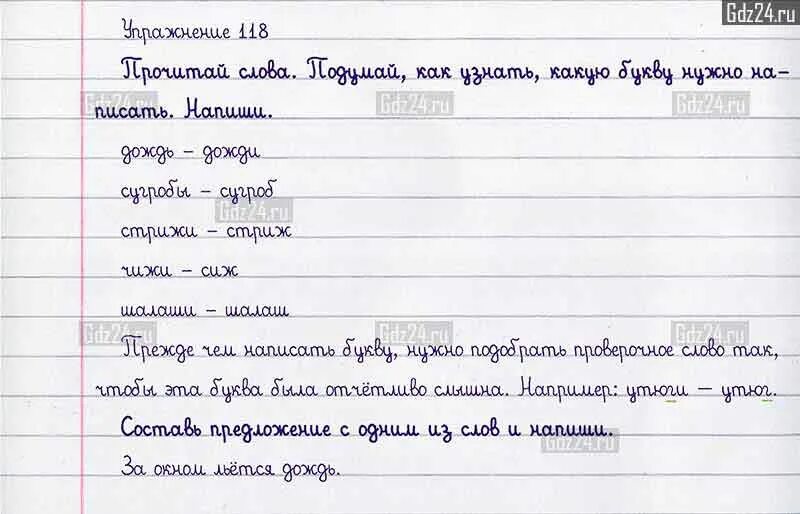 Gdz24.ru
Упражнение 118
Прочитай слова. Подумай, как узнать, какую букву нужно на-
Gdz24.ru Gdz24.ru Gdz24.ru
писать. Напиши.
дождь – дожди
сугробы – сугроб
Gdz24.ru
стрижи – стриж
чижи – сиж
шалаши – шалаш
Gdz24.ru Gdz24.ru Gdz24.ru
Прежде чем написать букву, нужно подобрать проверочное слово так,
чтобы эта буква была отчётливо слышна. Например: утюги – утюг.
Составь предложение с одним из слов и напиши.
Gdz24.ru
За окном льётся дождь.